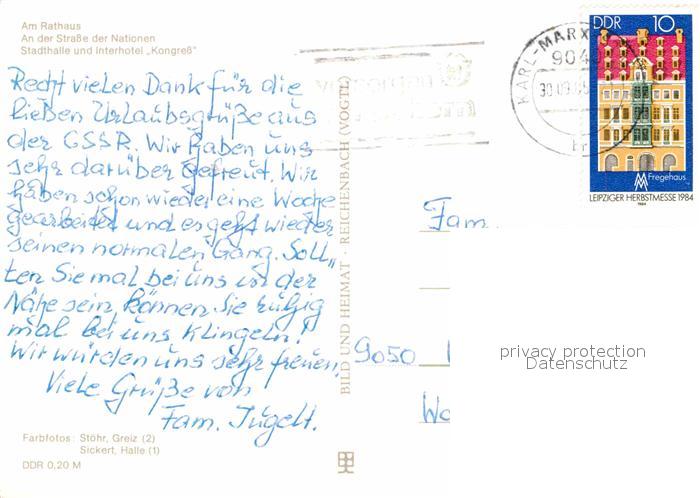 Am Rathaus
An der Straße der Nationen
Stadthalle und Interhotel „Kongreß"
Recht vielen Dank für die
lieben Urlaubsgrüße aus
der CSSR. Wir haben uns
sehr darüber gefreut. Wir
haben schon wieder eine Woche
gearbeitet und es geht wieder
seinen normalen Gang. Soll„
ten Sie mal bei uns in der
Nähe sein, können Sie ruhig
mal bei uns klingeln!
Wir würden uns sehr freuen.
Viele Grüße von
Fam. Jugelt.
Farbfotos: Stöhr, Greiz (2)
Sickert, Halle (1)
DDR 0,20 M
BILD UND HEIMAT · REICHENBACH (VOGTL)
KARL-MARX-
904
30.09.85
DDR 10
Fregehaus
LEIPZIGER HERBSTMESSE 1984
1984
Fam.
9050
privacy protection
Datenschutz